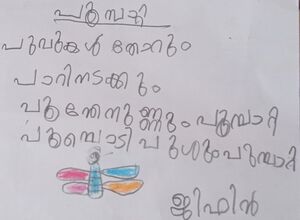 പൂമ്പാറ്റ
പൂവുകൾ തോറും
പാറിനടക്കും
പൂന്തേനുണ്ണും പൂമ്പാറ്റ
പൂമ്പൊടി പൂശും പൂമ്പാറ്റ
ജിഫിൻ